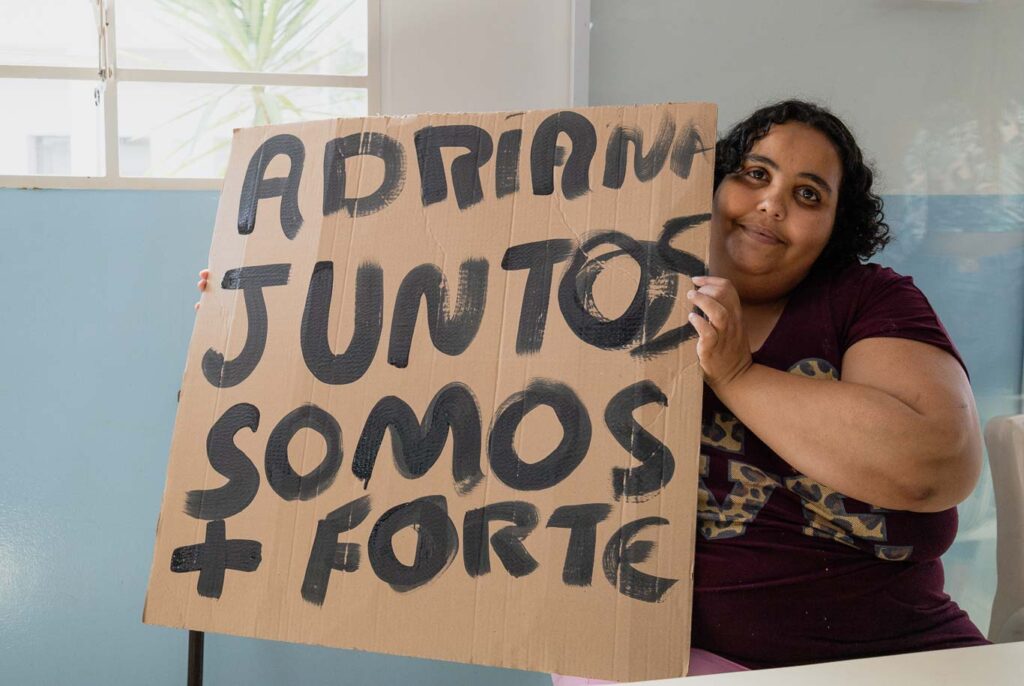 ADRIANA
JUNTOS
SOMOS
+ FORTE